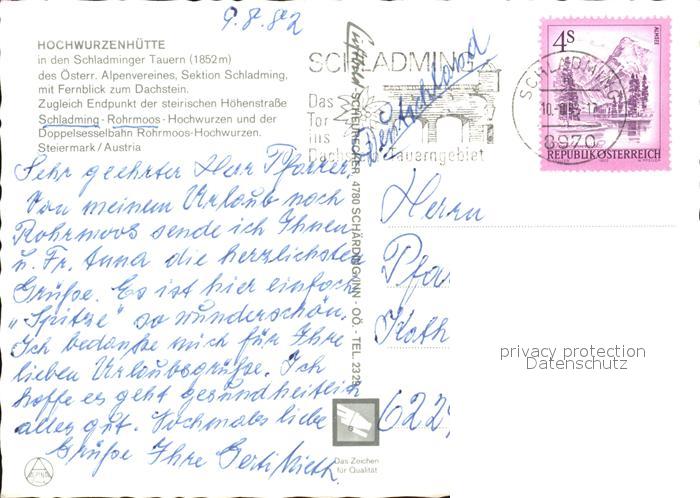 9.8.82
HOCHWURZENHÜTTE
in den Schladminger Tauern (1852m)
des Österr. Alpenvereines, Sektion Schladming,
mit Fernblick zum Dachstein.
Zugleich Endpunkt der steirischen Höhenstraße
Schladming-Rohrmoos-Hochwurzen und der
Doppelsesselbahn Rohrmoos-Hochwurzen.
Steiermark/Austria
Sehr geehrter Herr Pfarrer,
Von meinem Urlaub noch
Rohrmoos sende ich Ihnen
u. Fr. Anna die herzlichsten
Grüße. Es ist hier einfach
"Spitze" so wunderschön.
Ich bedanke mich für Ihre
lieben Urlaubsgrüße. Ich
hoffe es geht gesundheitlich
alles gut. Nochmals liebe
Grüße Ihre Gerti
SCHNEIDERECKER 4780 SCHÄRDING/INN - OÖ. - TEL. 2329
SCHLADMING
Das
Tor
ins
Dachstein Tauerngebiet
Deutschland
SCHLADMING
8970
4S
ALMSEE
REPUBLIK ÖSTERREICH
Herrn
Pfa
Koth
622
privacy protection
Datenschutz
Das Zeichen
für Qualität